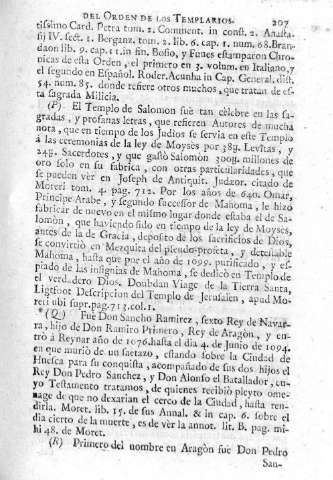 DEL ORDEN DE LOS TEMPLARIOS. 207
tissimo Card. Petra tom. 2. Comment. in const. 2. Anasta-
sij IV. sect. 1. Berganz. tom. 2. lib. 6. cap. 1. num. 68. Bran-
daon lib. 9. cap. 1. in fin. Bosio, y Funes estamparon Chro-
nicas de esta Orden, el primero en 3. volum. en Italiano, y
el segundo en Español. Roder. Acunha in Cap. General. dist.
54. num. 85. donde refiere otros muchos, que tratan de es-
ta sagrada Milicia.
(P) El Templo de Salomon fuè tan cèlebre en las sa-
gradas, y profanas letras, que refieren Autores de mucha
nota, que en tiempo de los Judios se servia en este Templo
à las ceremonias de la ley de Moysès por 38y. Levitas, y
24y. Sacerdotes, y que gastò Salomòn 300y. millones de
oro solo en su fabrica, con otras particularidades, que
se pueden vèr en Joseph de Antiquit. Judæor. citado de
Moreri tom. 4. pag. 712. Por los años de 640. Omar,
Principe Arabe, y segundo successor de Mahoma, le hizo
fabricar de nuevo en el mismo lugar donde estaba el de Sa-
lomòn, que haviendo sido en tiempo de la ley de Moysès,
antes de la de Gracia, deposito de los sacrificios de Dios,
se convirtiò en Mezquita del pseudo-profeta, y detestable
Mahoma, hasta que por el año de 1099. purificado, y es-
piado de las insignias de Mahoma, se dedicò en Templo de
el verdadero Dios. Doubdan Viage de la Tierra Santa,
Ligtfoot Descripcion del Templo de Jerusalen, apud Mo-
reri ubi supr. pag. 713. col. 1.
* (Q) Fuè Don Sancho Ramirez, sexto Rey de Navar-
ra, hijo de Don Ramiro Primero, Rey de Aragòn, y en-
trò à Reynar año de 1076. hasta el dia 4. de Junio de 1094.
en que muriò de un saetazo, estando sobre la Ciudad de
Huesca para su conquista, acompañado de sus dos hijos el
Rey Don Pedro Sanchez, y Don Alonso el Batallador, cu-
yo Testamento tratamos, de quienes recibiò pleyto ome-
nage de que no dexarian el cerco de la Ciudad, hasta ren-
dirla. Moret. lib. 15. de sus Annal. & in cap. 6. sobre el
dia cierto de la muerte, es de vèr la annot. lit. B. pag. mi-
hi 48. de Moret.
(R) Primero del nombre en Aragòn fuè Don Pedro
San-